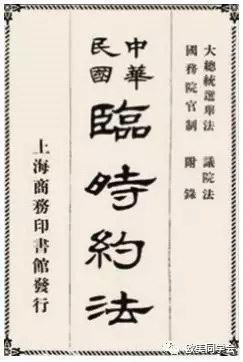 大總統選舉法　議院法
國務院官制　附錄
中華
民國
臨時約法
上海商務印書館發行
欧美同学会